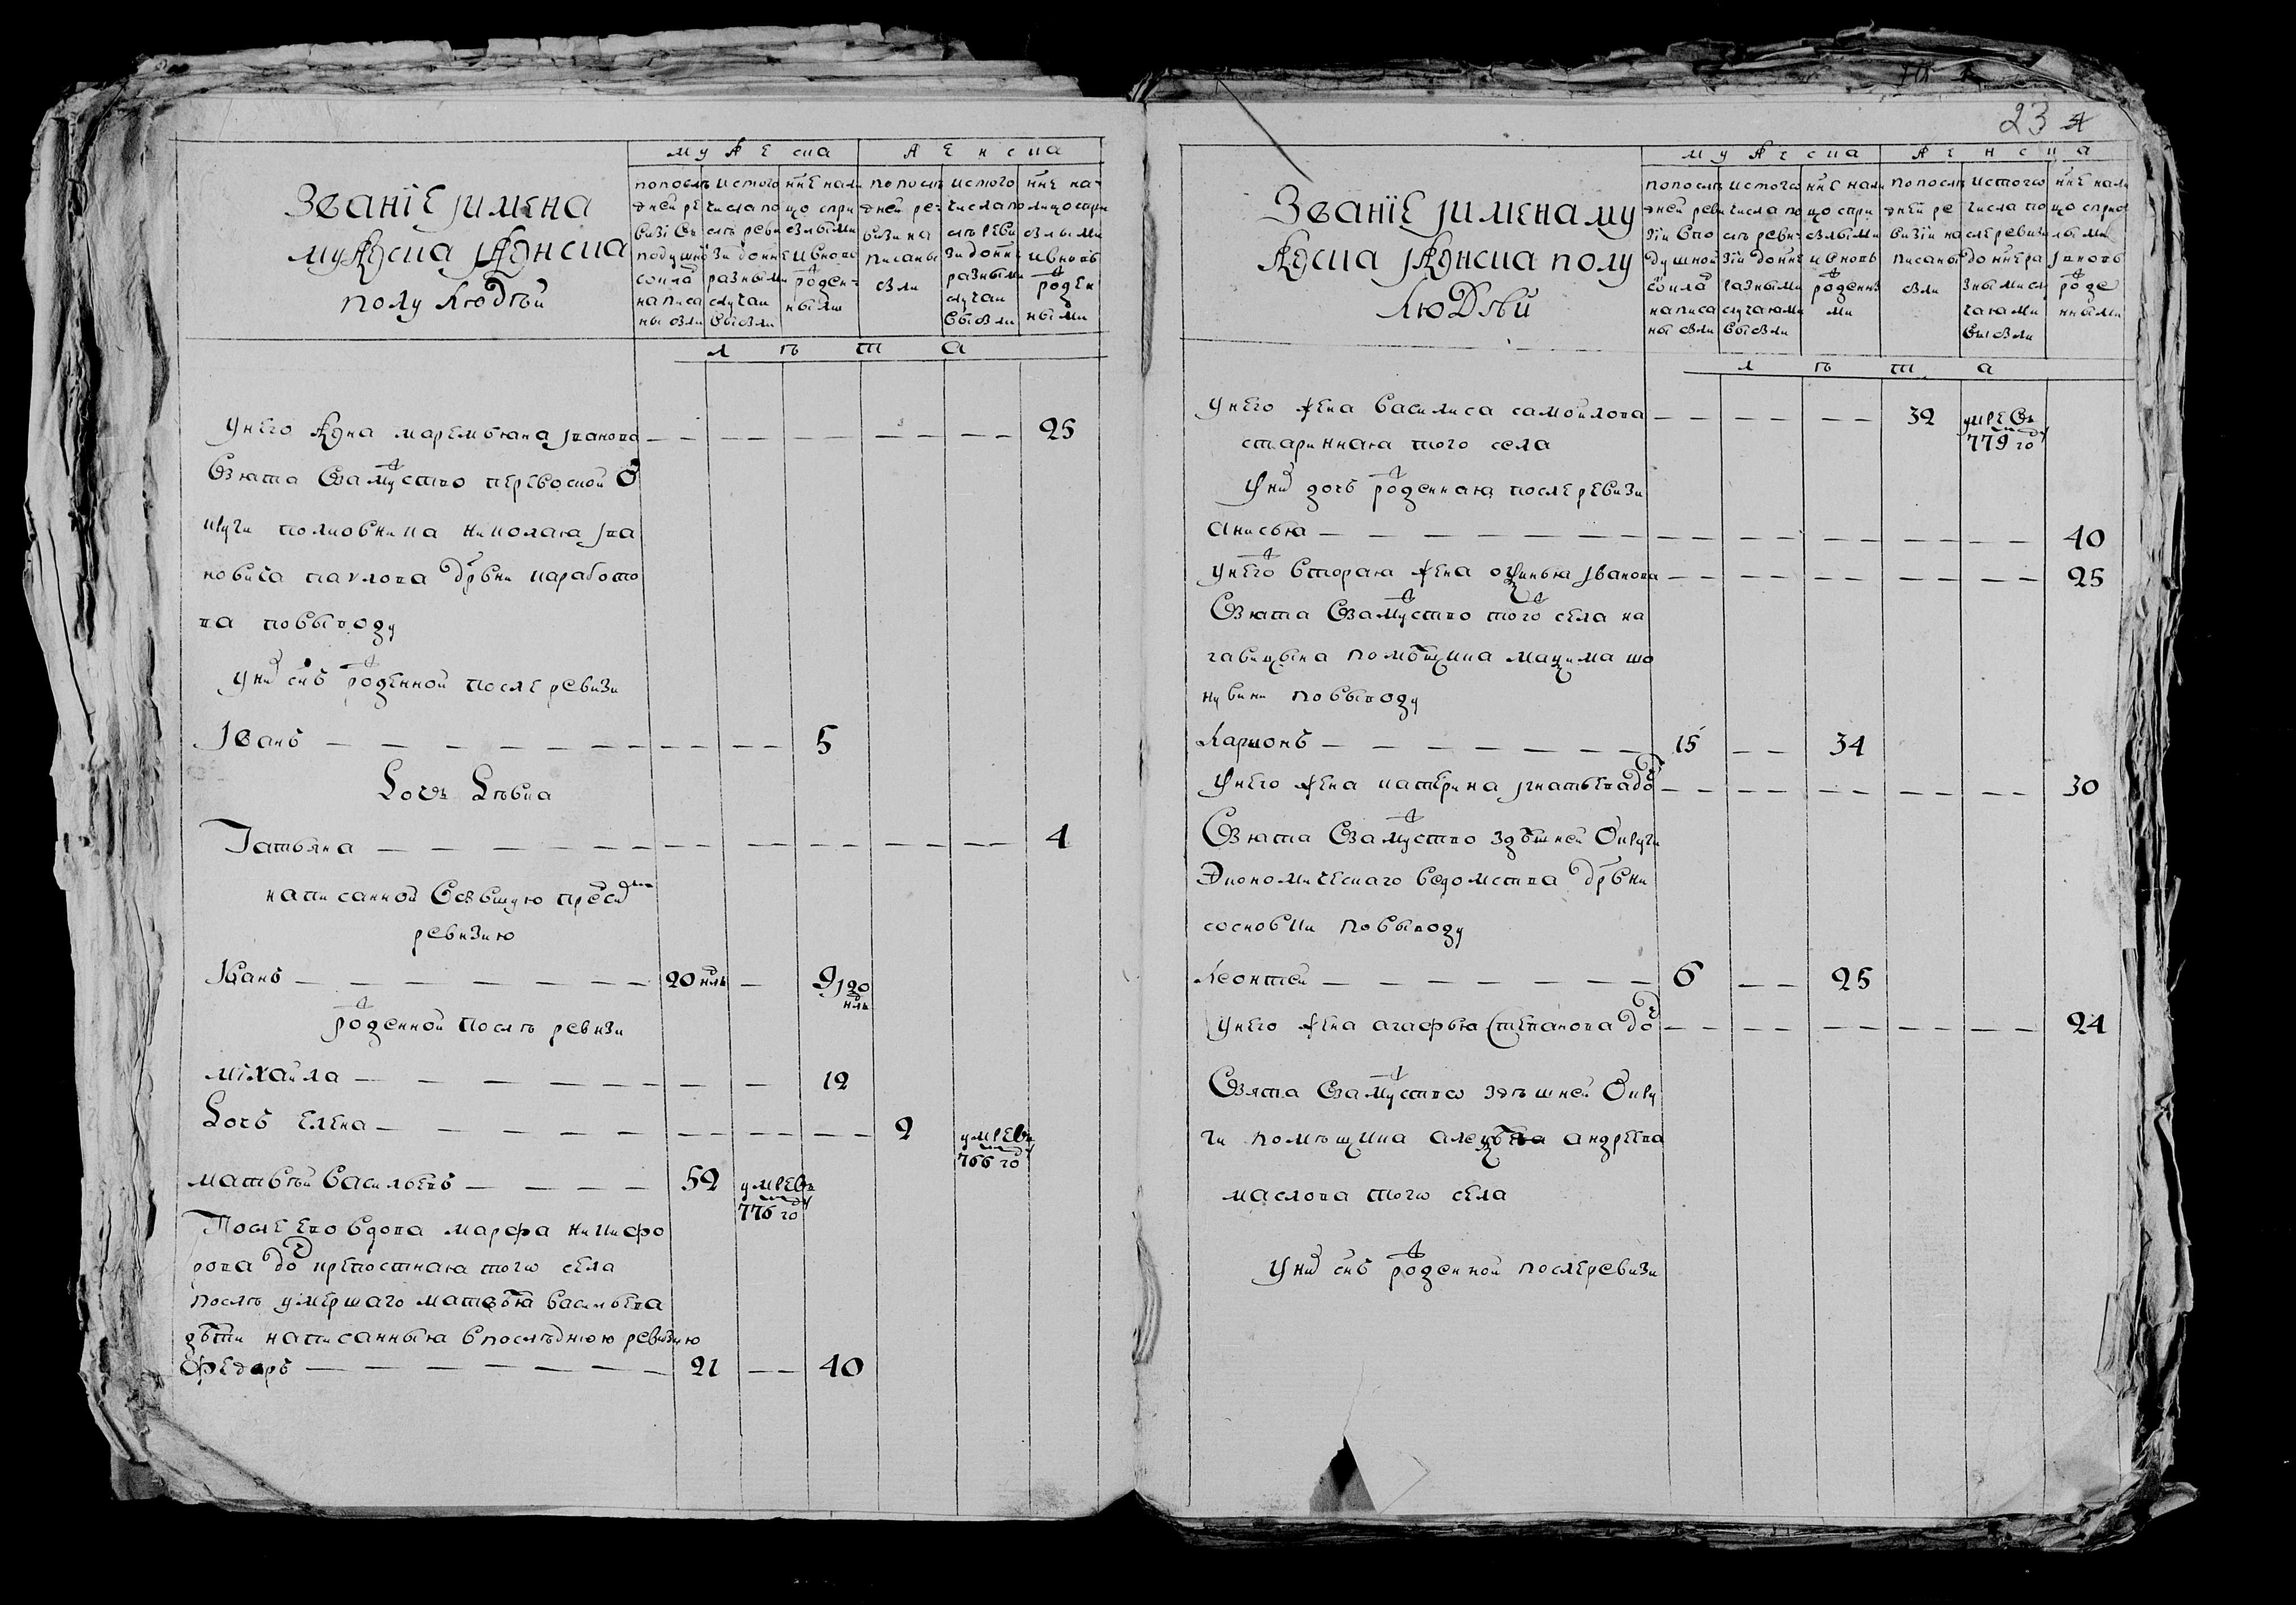 Званіе јимена
мужеска јженска
полу людѣй
мужеска
женска
попослѣ
дней ре
визі въ
подушно
написа
ны были
истого
числа по
слѣ реви
зи донне
разными
случаи
выбыли
нне нали
цо спри
былыми
ивновь
рожден
ными
попослѣ
дней ре
визи на
писаны
были
истого
числа по
слѣ реви
зи донне
разными
случаи
выбыли
нне на
лицо спри
былыми
ивновь
рожден
ными
лѣта
унего жена маремьяна јванова — — — — — — 25
Взята взамуство перевоской о
круги полковника николая јва
новича павлова држвни каработо
ва повыводу
уни снъ рожденной после ревизи
Јванъ — — — 5
Дочь девка
Татьяна — — — — — — 4
написанной въбывшую пред
ревизию
Јванъ — — 20 нль — 9 ј20 нль
рожденной послѣ ревизи
міхайла — — — 12
Дочь елена — — — — 2 умре въ
766 го
матвѣй васильевъ — — 52 умре въ
776 го
После ево вдова марфа никифо
рова до крепостная того села
послѣ умершаго матвѣя васильева
дѣти написанныя впослѣднюю ревизию
федоръ — — 21 — — 40
23
Званіе јимена му
жеска јженска полу
людѣй
мужеска
женска
попослѣ
дней реви
зіи впо
душной
написа
ны были
истого
числа по
слѣ реви
зіи донне
разными
случаями
выбыли
нне нали
цо спри
былыми
ивновь
рожденны
ми
попослѣ
дней ре
визіи на
писаны
были
истого
числа по
слѣ ревизи
до нне ра
зными слу
чаями
выбыли
нне нали
цо спри
былыми
јвновь
рожде
нными
лѣта
унего жена василиса самойлова — — — — 32 умре въ
старинная того села 779 го
уни дочь рожденная после ревизи
анисья — — — — — — 40
унего вторая жена офинья јванова — — — — — — 25
Взята взамуство того села на
гавицына помѣщика максима шо
кувини повыводу
Ларионъ — — 15 — — 34
унего жена катерина јгнатьева до — — — — — — 30
Взята взамуство здѣшней округи
Экономическаго ведомства држвни
сосновки повыводу
Леонтей — — 6 — — 25
унего жена агафья степанова до — — — — — — 24
Взята взамуство здѣшней окру
ги помѣщика алексѣя андреева
маслова того села
уни снъ рожденной послеревизи